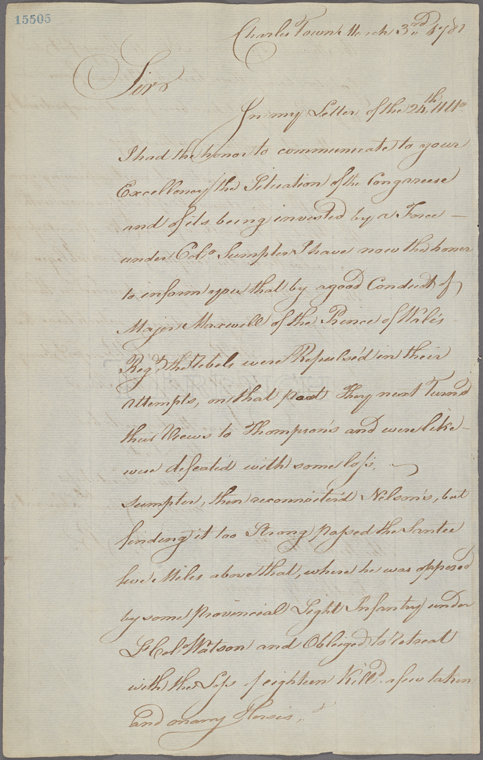 15505
Charles Town March 3rd 1781
Sir
In my Letter of the 24th Ulto
I had the honor to communicate to your
Excellency the Situation of the Congaree
and of its being invested by a Force —
under Colo Sumpter I have now the honor
to inform you that by a good Conduct of
Major Maxwell of the Prince of Wales
Regt the Rebels were Repulsed in their
attempts, on that post They next Turnd
their Views to Thompson's and were like-
wise defeated with some loss.
Sumpter, then reconnoitred Nelson's, but
finding it too Strong passed the Santee
five Miles above that, where he was opposed
by some Provincial Light Infantry under
Lt Colo Watson and Obliged to retreat
with the Loss of eighteen Killd a few taken
and many Horses,